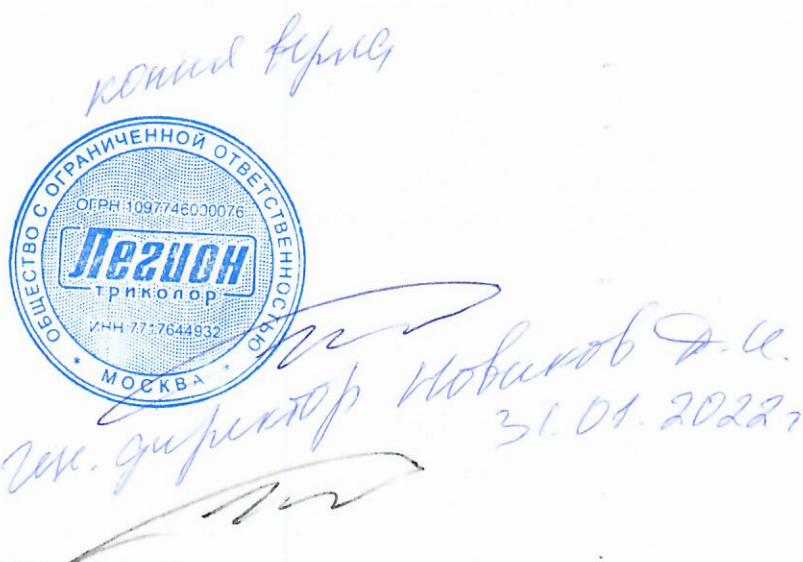 копия верна
ОБЩЕСТВО С ОГРАНИЧЕННОЙ ОТВЕТСТВЕННОСТЬЮ
ОГРН 1097746000076
Легион
триколор
ИНН 7717644932
* МОСКВА *
ген. директор Новиков Д.И.
31.01.2022г